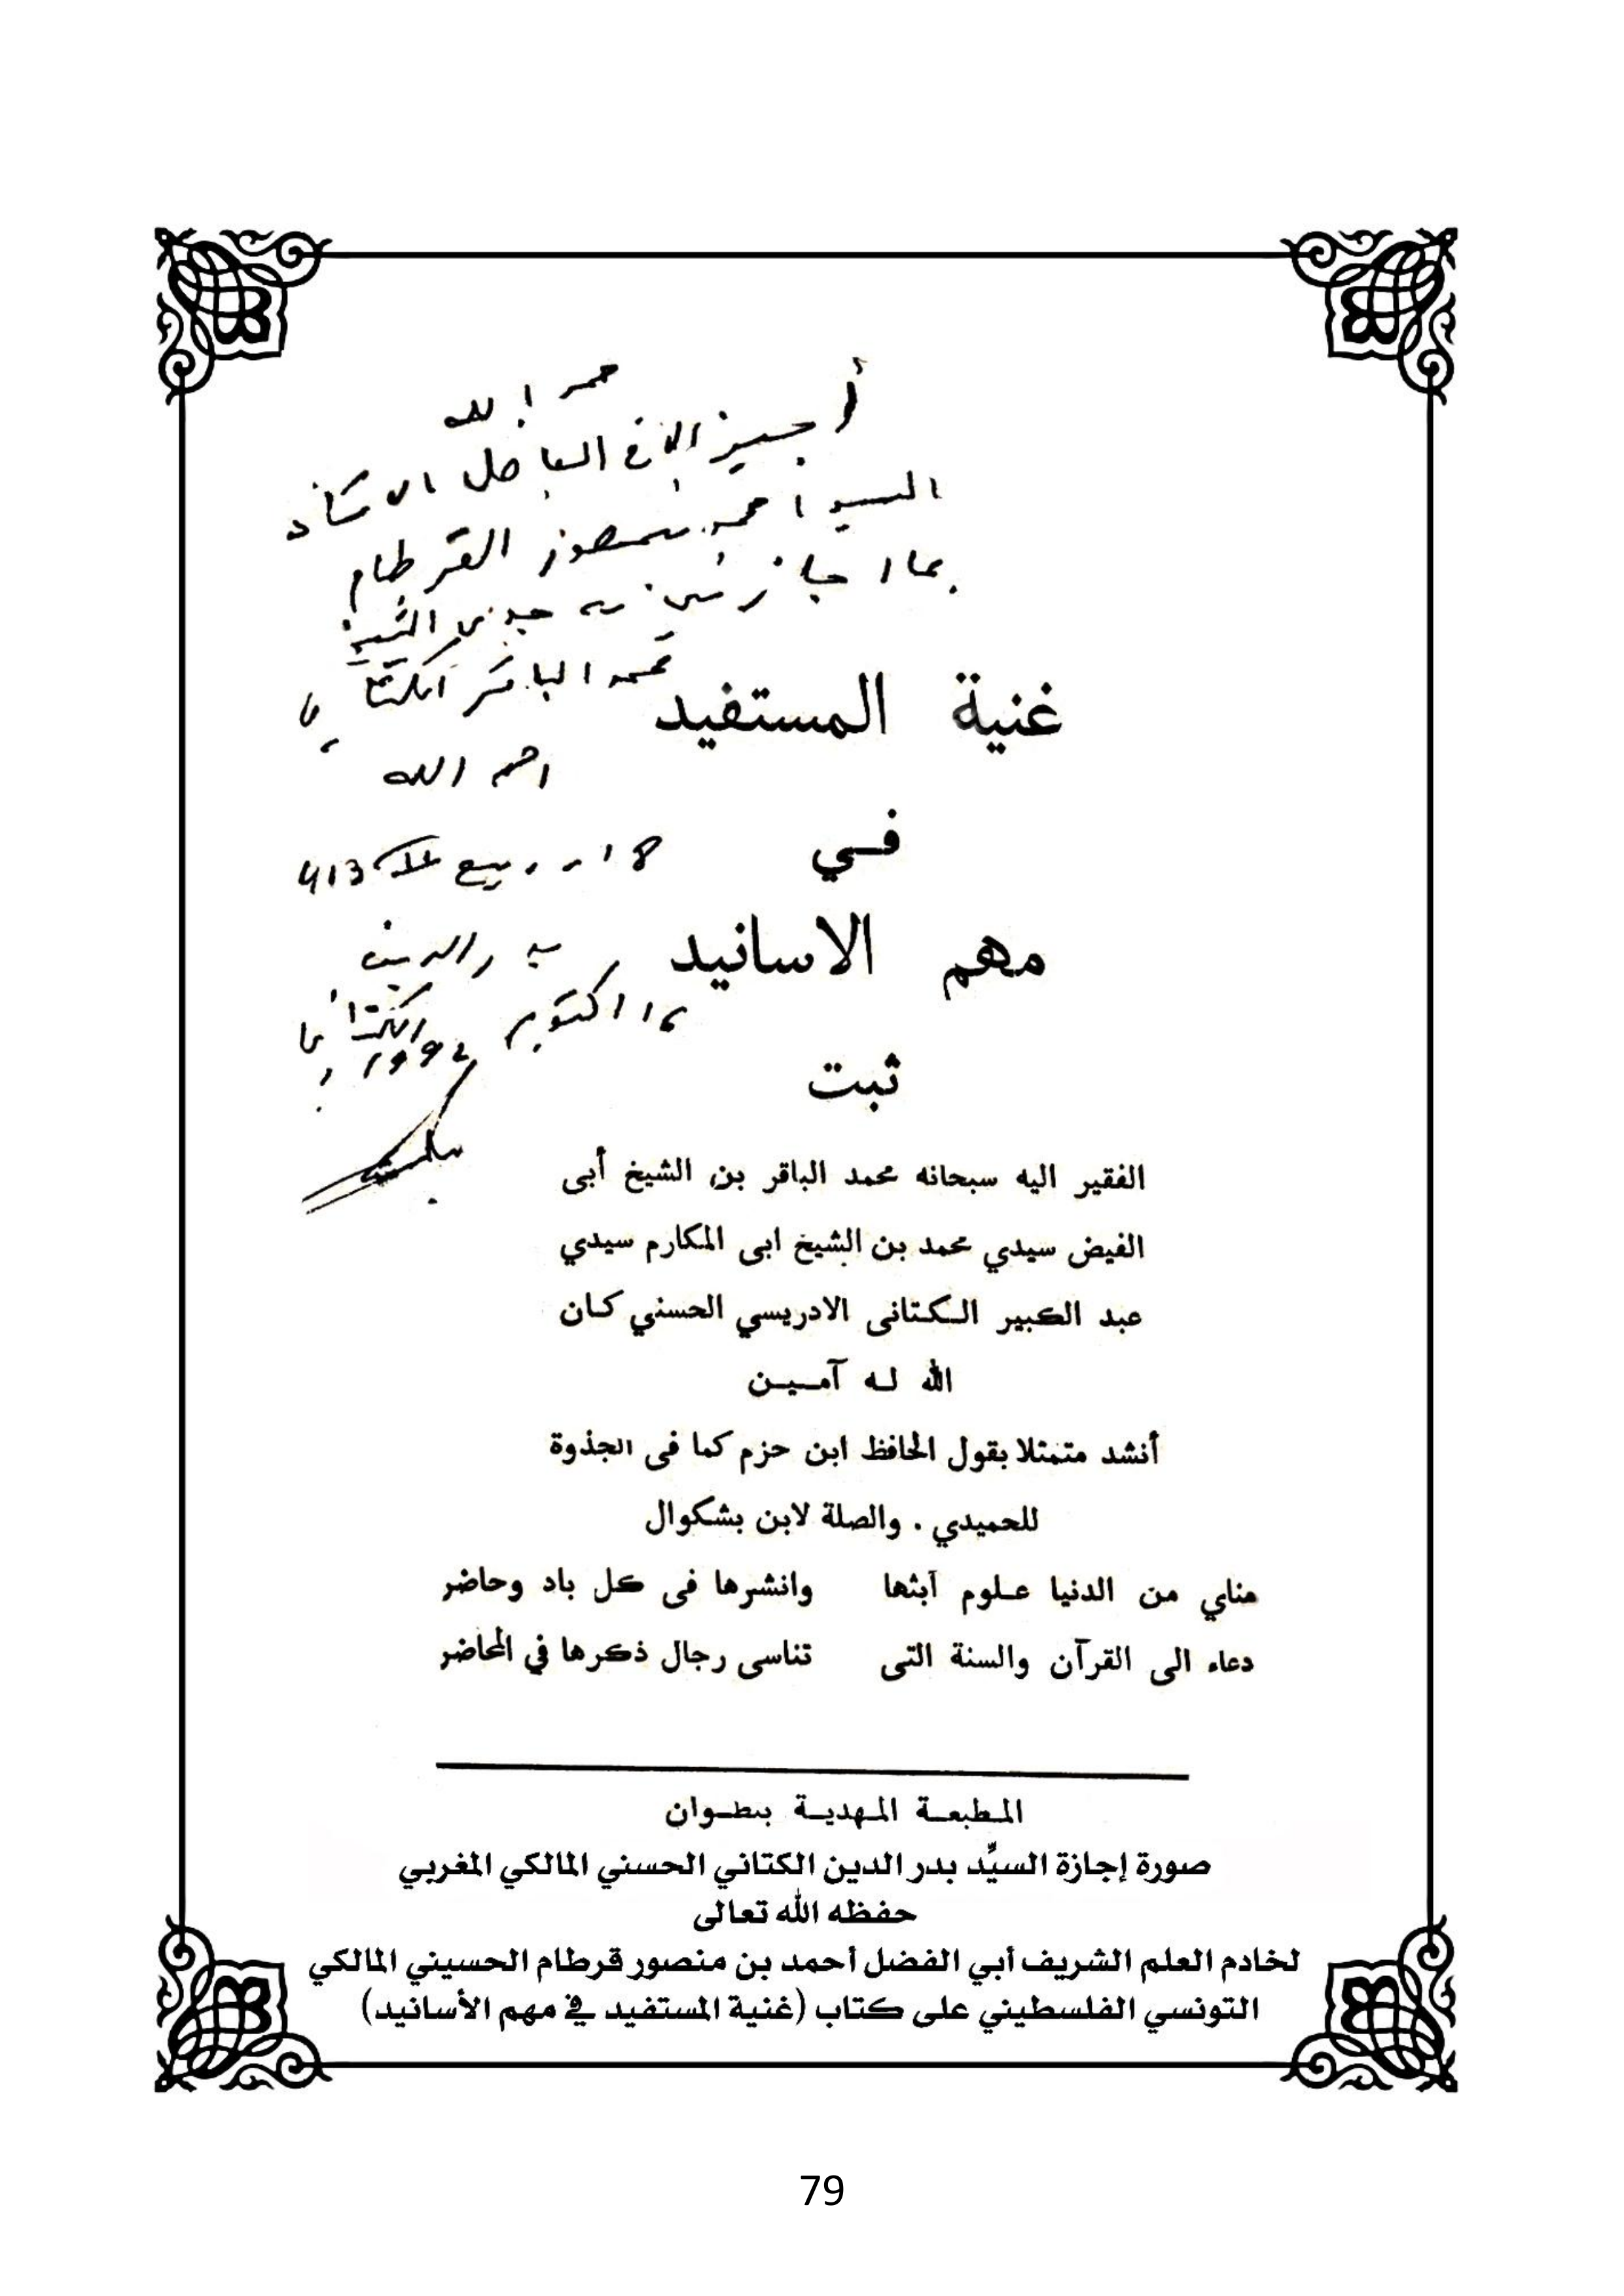 حمد الله
أجيز الأخ الفاضل الاستاذ
السيد احمد منصور القرطام
بما اجازني به جدي الشيخ
محمد الباقر الكتاني
رحمه الله
18 ربيع 413
بدر الدين
الكتاني
16 اكتوبر 1992
غنية المستفيد
في
مهم الاسانيد
ثبت
الفقير اليه سبحانه محمد الباقر بن الشيخ أبى
الفيض سيدي محمد بن الشيخ ابى المكارم سيدي
عبد الكبير الكتانى الادريسي الحسني كان
الله له آمين
أنشد متمثلا بقول الحافظ ابن حزم كما فى الجذوة
للحميدي . والصلة لابن بشكوال
مناي من الدنيا علوم آبثها وانشرها فى كل باد وحاضر
دعاء الى القرآن والسنة التى تناسى رجال ذكرها في المحاضر
المطبعة المهدية بتطوان
صورة إجازة السيِّد بدر الدين الكتاني الحسني المالكي المغربي
حفظه الله تعالى
لخادم العلم الشريف أبي الفضل أحمد بن منصور قرطام الحسيني المالكي
التونسي الفلسطيني على كتاب (غنية المستفيد في مهم الأسانيد)
79